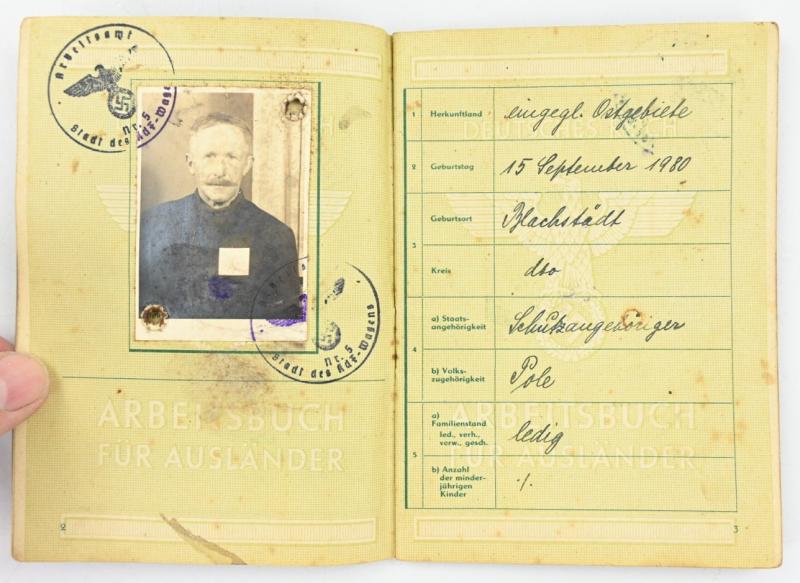 Arbeitsamt
Nr. 5
Stadt des KdF-Wagens
Nr. 5
Stadt des KdF-Wagens
ARBEITSBUCH
FÜR AUSLÄNDER
2
1 Herkunftland eingegl. Ostgebiete
DEUTSCHES REICH
2 Geburtstag 15 September 1980
3 Geburtsort Blachstädt
Kreis dto
4 a) Staats-
angehörigkeit Schutzangehöriger
b) Volks-
zugehörigkeit Pole
5 a)
Familienstand
led., verh.,
verw., gesch. ledig
b) Anzahl
der minder-
jährigen
Kinder ·/.
ARBEITSBUCH
FÜR AUSLÄNDER
3